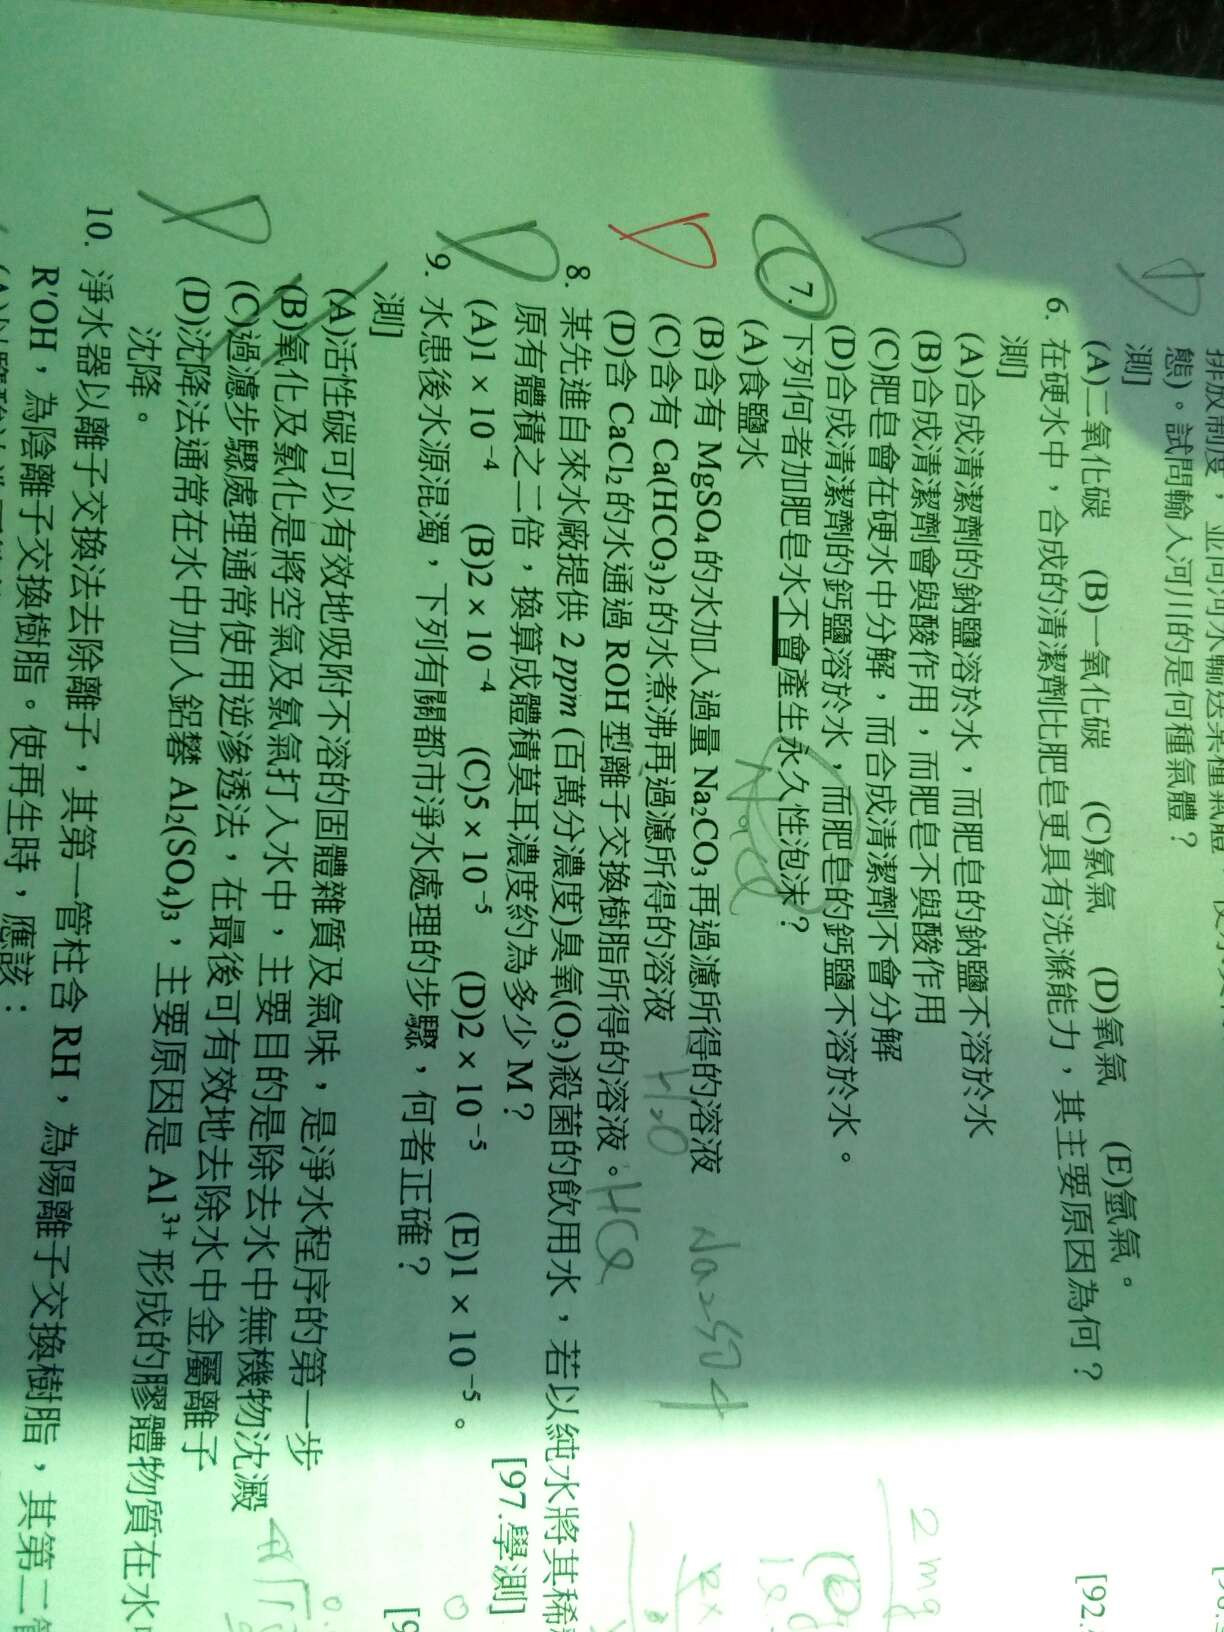 排放制度，並向河水輸送某種氣體
態)。試問輸入河川的是何種氣體？
測]
(A)二氧化碳 (B)一氧化碳 (C)氯氣 (D)氧氣 (E)氫氣。
D 6. 在硬水中，合成的清潔劑比肥皂更具有洗滌能力，其主要原因為何？ [92.
測]
(A)合成清潔劑的鈉鹽溶於水，而肥皂的鈉鹽不溶於水
(B)合成清潔劑會與酸作用，而肥皂不與酸作用
(C)肥皂會在硬水中分解，而合成清潔劑不會分解
(D)合成清潔劑的鈣鹽溶於水，而肥皂的鈣鹽不溶於水。
D 7. 下列何者加肥皂水不會產生永久性泡沫？
(A)食鹽水
(B)含有 MgSO₄的水加入過量 Na₂CO₃再過濾所得的溶液 Na₂SO₄
(C)含有 Ca(HCO₃)₂的水煮沸再過濾所得的溶液 H₂O
(D)含 CaCl₂的水通過 ROH 型離子交換樹脂所得的溶液。HCl
D 8. 某先進自來水廠提供 2 ppm (百萬分濃度)臭氧(O₃)殺菌的飲用水，若以純水將其稀
原有體積之二倍，換算成體積莫耳濃度約為多少 M？ [97.學測]
(A)1 × 10⁻⁴ (B)2 × 10⁻⁴ (C)5 × 10⁻⁵ (D)2 × 10⁻⁵ (E)1 × 10⁻⁵。
D 9. 水患後水源混濁，下列有關都市淨水處理的步驟，何者正確？ [9
測]
(A)活性碳可以有效地吸附不溶的固體雜質及氣味，是淨水程序的第一步
(B)氧化及氯化是將空氣及氯氣打入水中，主要目的是除去水中無機物沈澱
(C)過濾步驟處理通常使用逆滲透法，在最後可有效地去除水中金屬離子
(D)沈降法通常在水中加入鋁礬 Al₂(SO₄)₃，主要原因是 Al³⁺形成的膠體物質在水
沈降。
D 10. 淨水器以離子交換法去除離子，其第一管柱含 RH，為陽離子交換樹脂，其第二管
R′OH，為陰離子交換樹脂。使再生時，應該：
2 mg